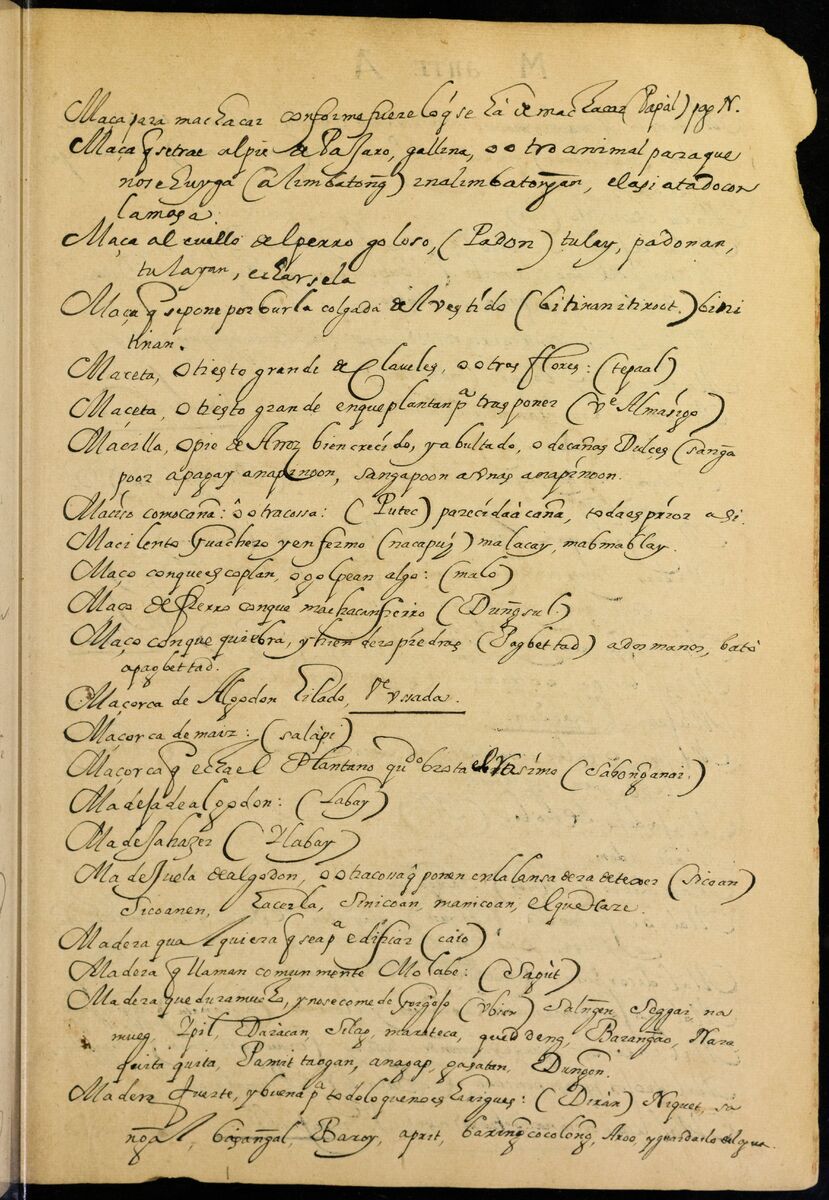 Maça para machacar conforme fuere lo q̃ se ha de machacar (Papàl) pap N.
Maça q̃ se trae al pie de Pajaro, gallina, o otro animal para que
no se huyga (alimbatong̃) inalimbatong̃an, el asi atado con
la maça.
Maça al cuello del perro goloso, (Padon) tulay, padonan,
tulayan, echarsela
Maça q̃ se pone por burla colgada del vestido (bitinanitinoct.) bini
tinan.
Maceta, o tiesto grande de Claveles, o otras flores: (tepaal)
Maceta, o tiesto grande en que plantan pa trasponer (Ve Almásigo)
Macilla, o pie de Arroz bien crecido, y abultado, o de cañas Dulçes (sang̃a
poor apagay anapinoon, sangapoon a unas anapinoon.
Maciso como caña: o otra cossa: (Putec) parecida à caña, toda es prior asi.
Macilento Guachero y enfermo (nacapuy) malacay, mabmablay.
Maço con que escoplan, o golpean algo: (malo)
Maço de fierro con que machacan fierro (Dung̃sul)
Maço con que quiebra, y hienden piedras (Pagbettad) a dos manos, bató
apagbettad.
Maçorca de Algodon hilado, Ve ussada.
Maçorca de maiz: (salapi)
Maçorca q̃ echa el Plantano qudo brota el rasimo (Sabong̃anai)
Madeja de algodon: (Labay)
Madeja hazer (Ylabay)
Madejuela de algodon, o otra cossa q̃ ponen en la lansadera de texer (Sicoan)
Sicoanen, hacerla, Sinicoan, manicoan, el que la haze.
Madera qualquiera q̃ sea pa edificar (caio)
Madera q̃ llaman comunmente Molabe: (Sagùt)
Madera que dura mucho, y no se come de Gorgojo (Ybien) Saling̃en, Seggai, na
mueg, Ypil, Daracan, Silag, marateca, queddeng, Barang̃ao, Nara,
quita quita, Pamittaogan, anagap, gasatan, Dung̃on.
Madera fuerte, y buena pa todo lo que no es harigues: (Diran) Niquet, sa
ng̃al, basang̃al, Baroy, aprit, baring̃cocolong̃, Aroo, y guardarlo del agua.